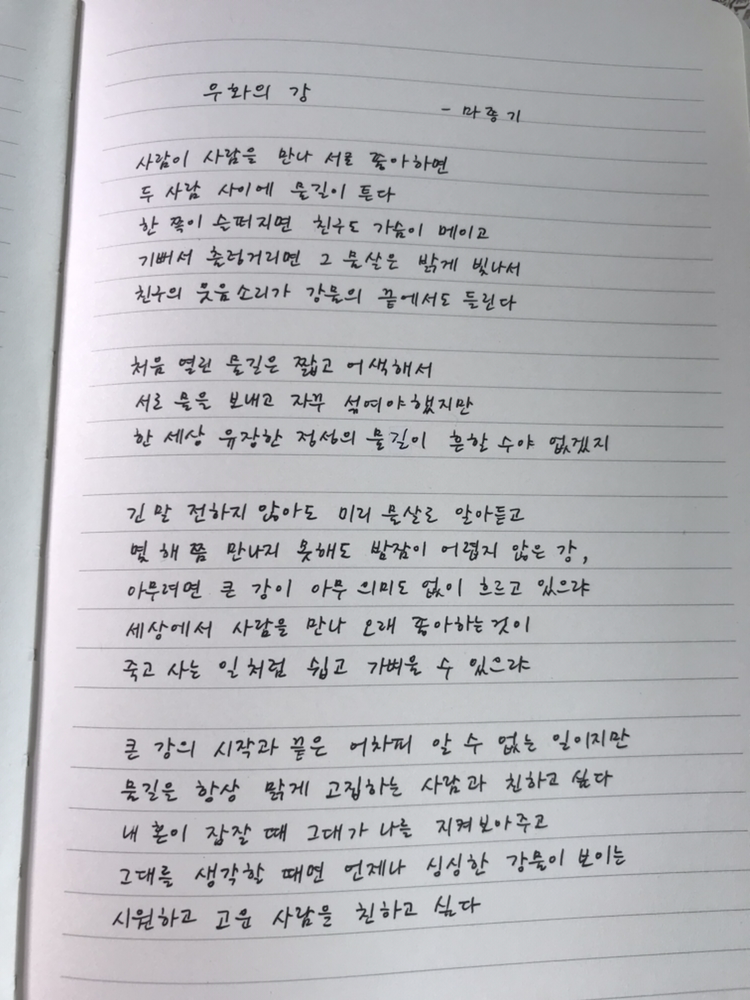 우화의 강
- 마종기
사람이 사람을 만나 서로 좋아하면
두 사람 사이에 물길이 튼다
한 쪽이 슬퍼지면 친구도 가슴이 메이고
기뻐서 출렁거리면 그 물살은 밝게 빛나서
친구의 웃음소리가 강물의 끝에서도 들린다
처음 열린 물길은 짧고 어색해서
서로 물을 보내고 자꾸 섞여야했지만
한 세상 유장한 정성의 물길이 흔할 수야 없겠지
긴 말 전하지 않아도 미리 물살로 알아듣고
몇 해 쯤 만나지 못해도 밤잠이 어렵지 않은 강,
아무려면 큰 강이 아무 의미도 없이 흐르고 있으랴
세상에서 사람을 만나 오래 좋아하는것이
죽고 사는 일처럼 쉽고 가벼울 수 있으랴
큰 강의 시작과 끝은 어차피 알 수 없는 일이지만
물길을 항상 맑게 고집하는 사람과 친하고 싶다
내 혼이 잠잘 때 그대가 나를 지켜보아주고
그대를 생각할 때면 언제나 싱싱한 강물이 보이는
시원하고 고운 사람을 친하고 싶다